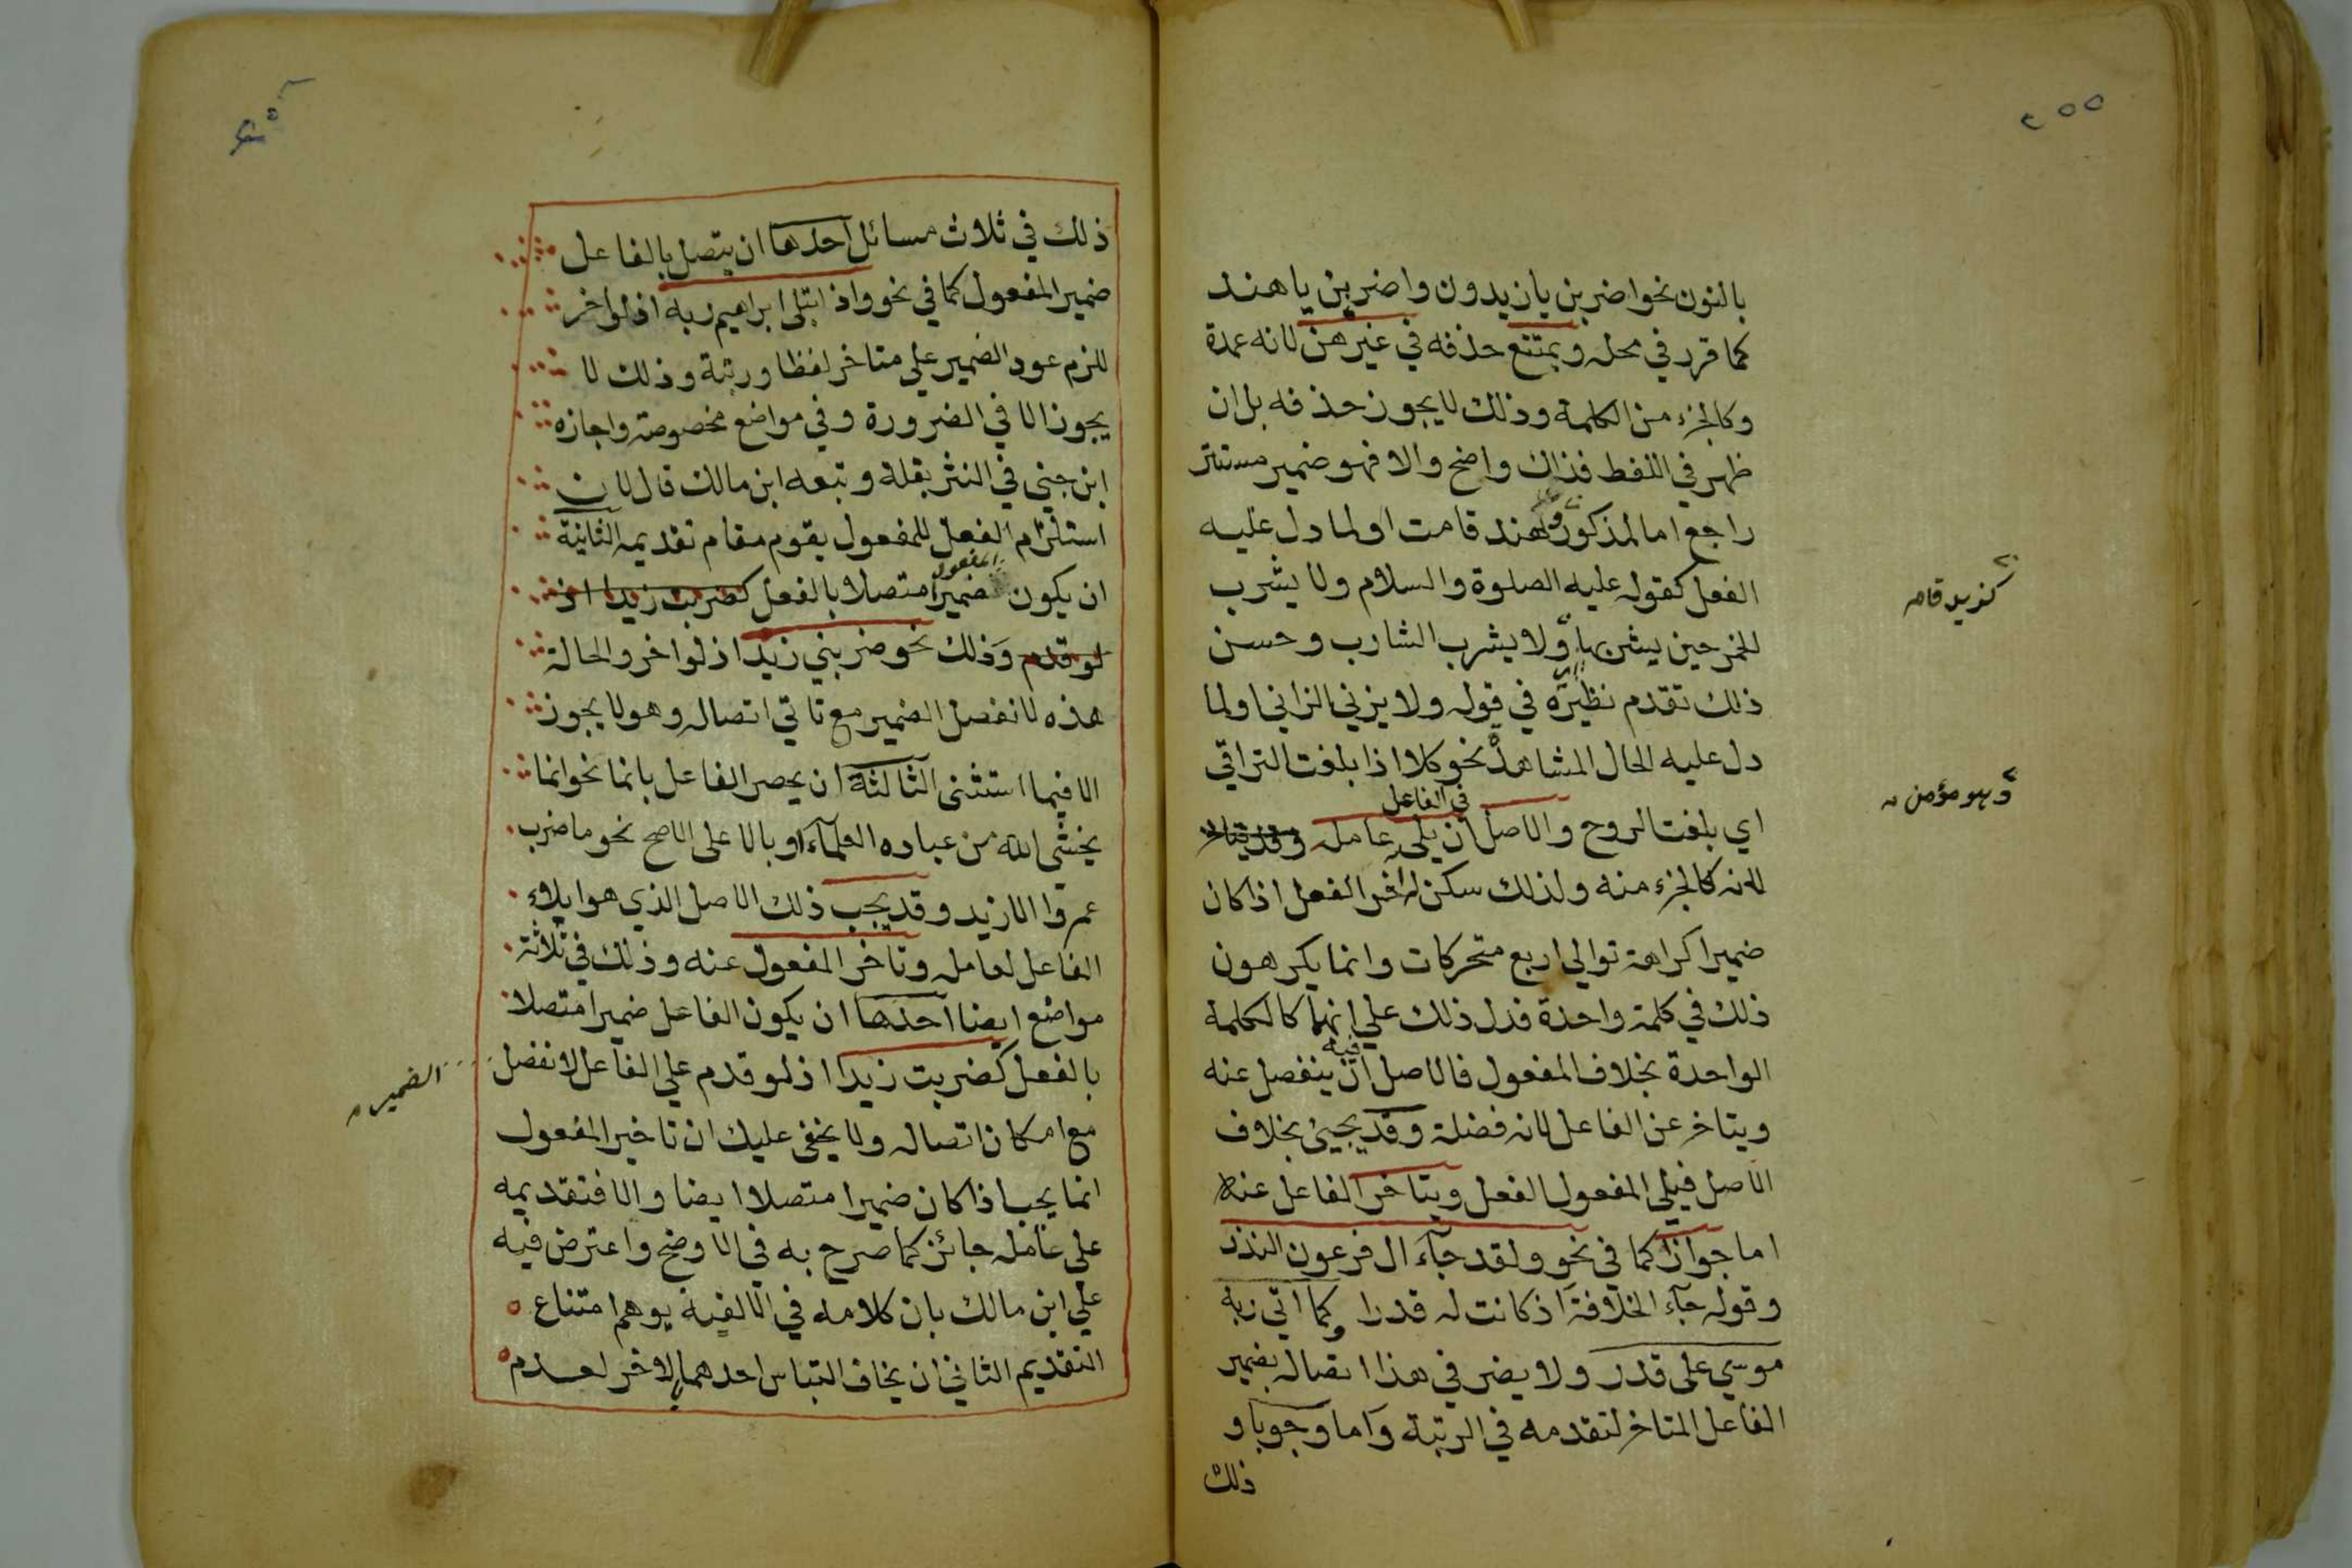 ٢٥٥
بالنون نحو اضربن يا زيدون واضربن يا هند
كما قرر في محله ويمتنع حذفه في غير هن لانه عمدة
وكالجزء من الكلمة وذلك لا يجوز حذفه بل ان
ظهر في اللفظ فذاك واضح والا فهو ضمير مستتر
راجع اما لمذكور وهند قامت او لما دل عليه
كزيد قام
الفعل كقوله عليه الصلوة والسلام ولا يشرب
الخمر حين يشربها ولا يشرب الشارب وحسن
وهو مؤمن
ذلك تقدم نظيره في قوله ولا يزني الزاني او لما
دل عليه الحال المشاهدة نحو كلا اذا بلغت التراقي
اي بلغت الروح والاصل في الفاعل ان يلي عامله
لانه كالجزء منه ولذلك سكن له اخر الفعل اذا كان
ضميرا كراهة توالي اربع متحركات وانما يكرهون
ذلك في كلمة واحدة فدل ذلك علي انهما كالكلمة
الواحدة بخلاف المفعول فالاصل فيه ان ينفصل عنه
ويتاخر عن الفاعل لانه فضلة وقد يجيئ بخلاف
الاصل فيلي المفعول الفعل ويتاخر الفاعل عنه
اما جوازا كما في نحو ولقد جآء ال فرعون النذر
وقوله جآء الخلافة اذ كانت له قدرا وكما اتي ربه
موسي علي قدر ولا يضر في هذا اتصاله بضمير
الفاعل المتاخر لتقدمه في الرتبة واما وجوبا و
ذلك
ذلك في ثلاث مسائل احدها ان يتصل بالفاعل
ضمير المفعول كما في نحو واذ ابتلى ابراهيم ربه اذ لو اخر
للزم عود الضمير علي متاخر لفظا ورتبة وذلك لا
يجوز الا في الضرورة وفي مواضع مخصوصة واجازه
ابن جني في النثر بقلة وتبعه ابن مالك قال لان
استلزام الفعل للمفعول يقوم مقام تقديمه الثانية
ان يكون المفعول ضميرا متصلا بالفعل كضربت زيدا اذ
لو قدم وذلك نحو ضربني زيد اذ لو اخر والحالة
هذه لانفصل الضمير مع تاتي اتصاله وهو لا يجوز
الا فيما استثنى الثالثة ان يحصر الفاعل بانما نحو انما
يخشى الله من عباده العلمآء او بالا على الاصح نحو ما ضرب
عمروا الا زيد وقد يجب ذلك الاصل الذي هو ايلاء
الفاعل لعامله وتاخر المفعول عنه وذلك في ثلاثة
مواضع ايضا احدها ان يكون الفاعل ضميرا متصلا
بالفعل كضربت زيدا اذ لو قدم علي الفاعل لانفصل
الضمير
مع امكان اتصاله ولا يخفى عليك ان تاخير المفعول
انما يجب اذا كان ضميرا متصلا ايضا والا فتقديمه
علي عامله جائز كما صرح به في الاوضح واعترض فيه
علي ابن مالك بان كلامه في الالفية يوهم امتناع
التقديم الثاني ان يخاف التباس احدهما بالاخر لعدم